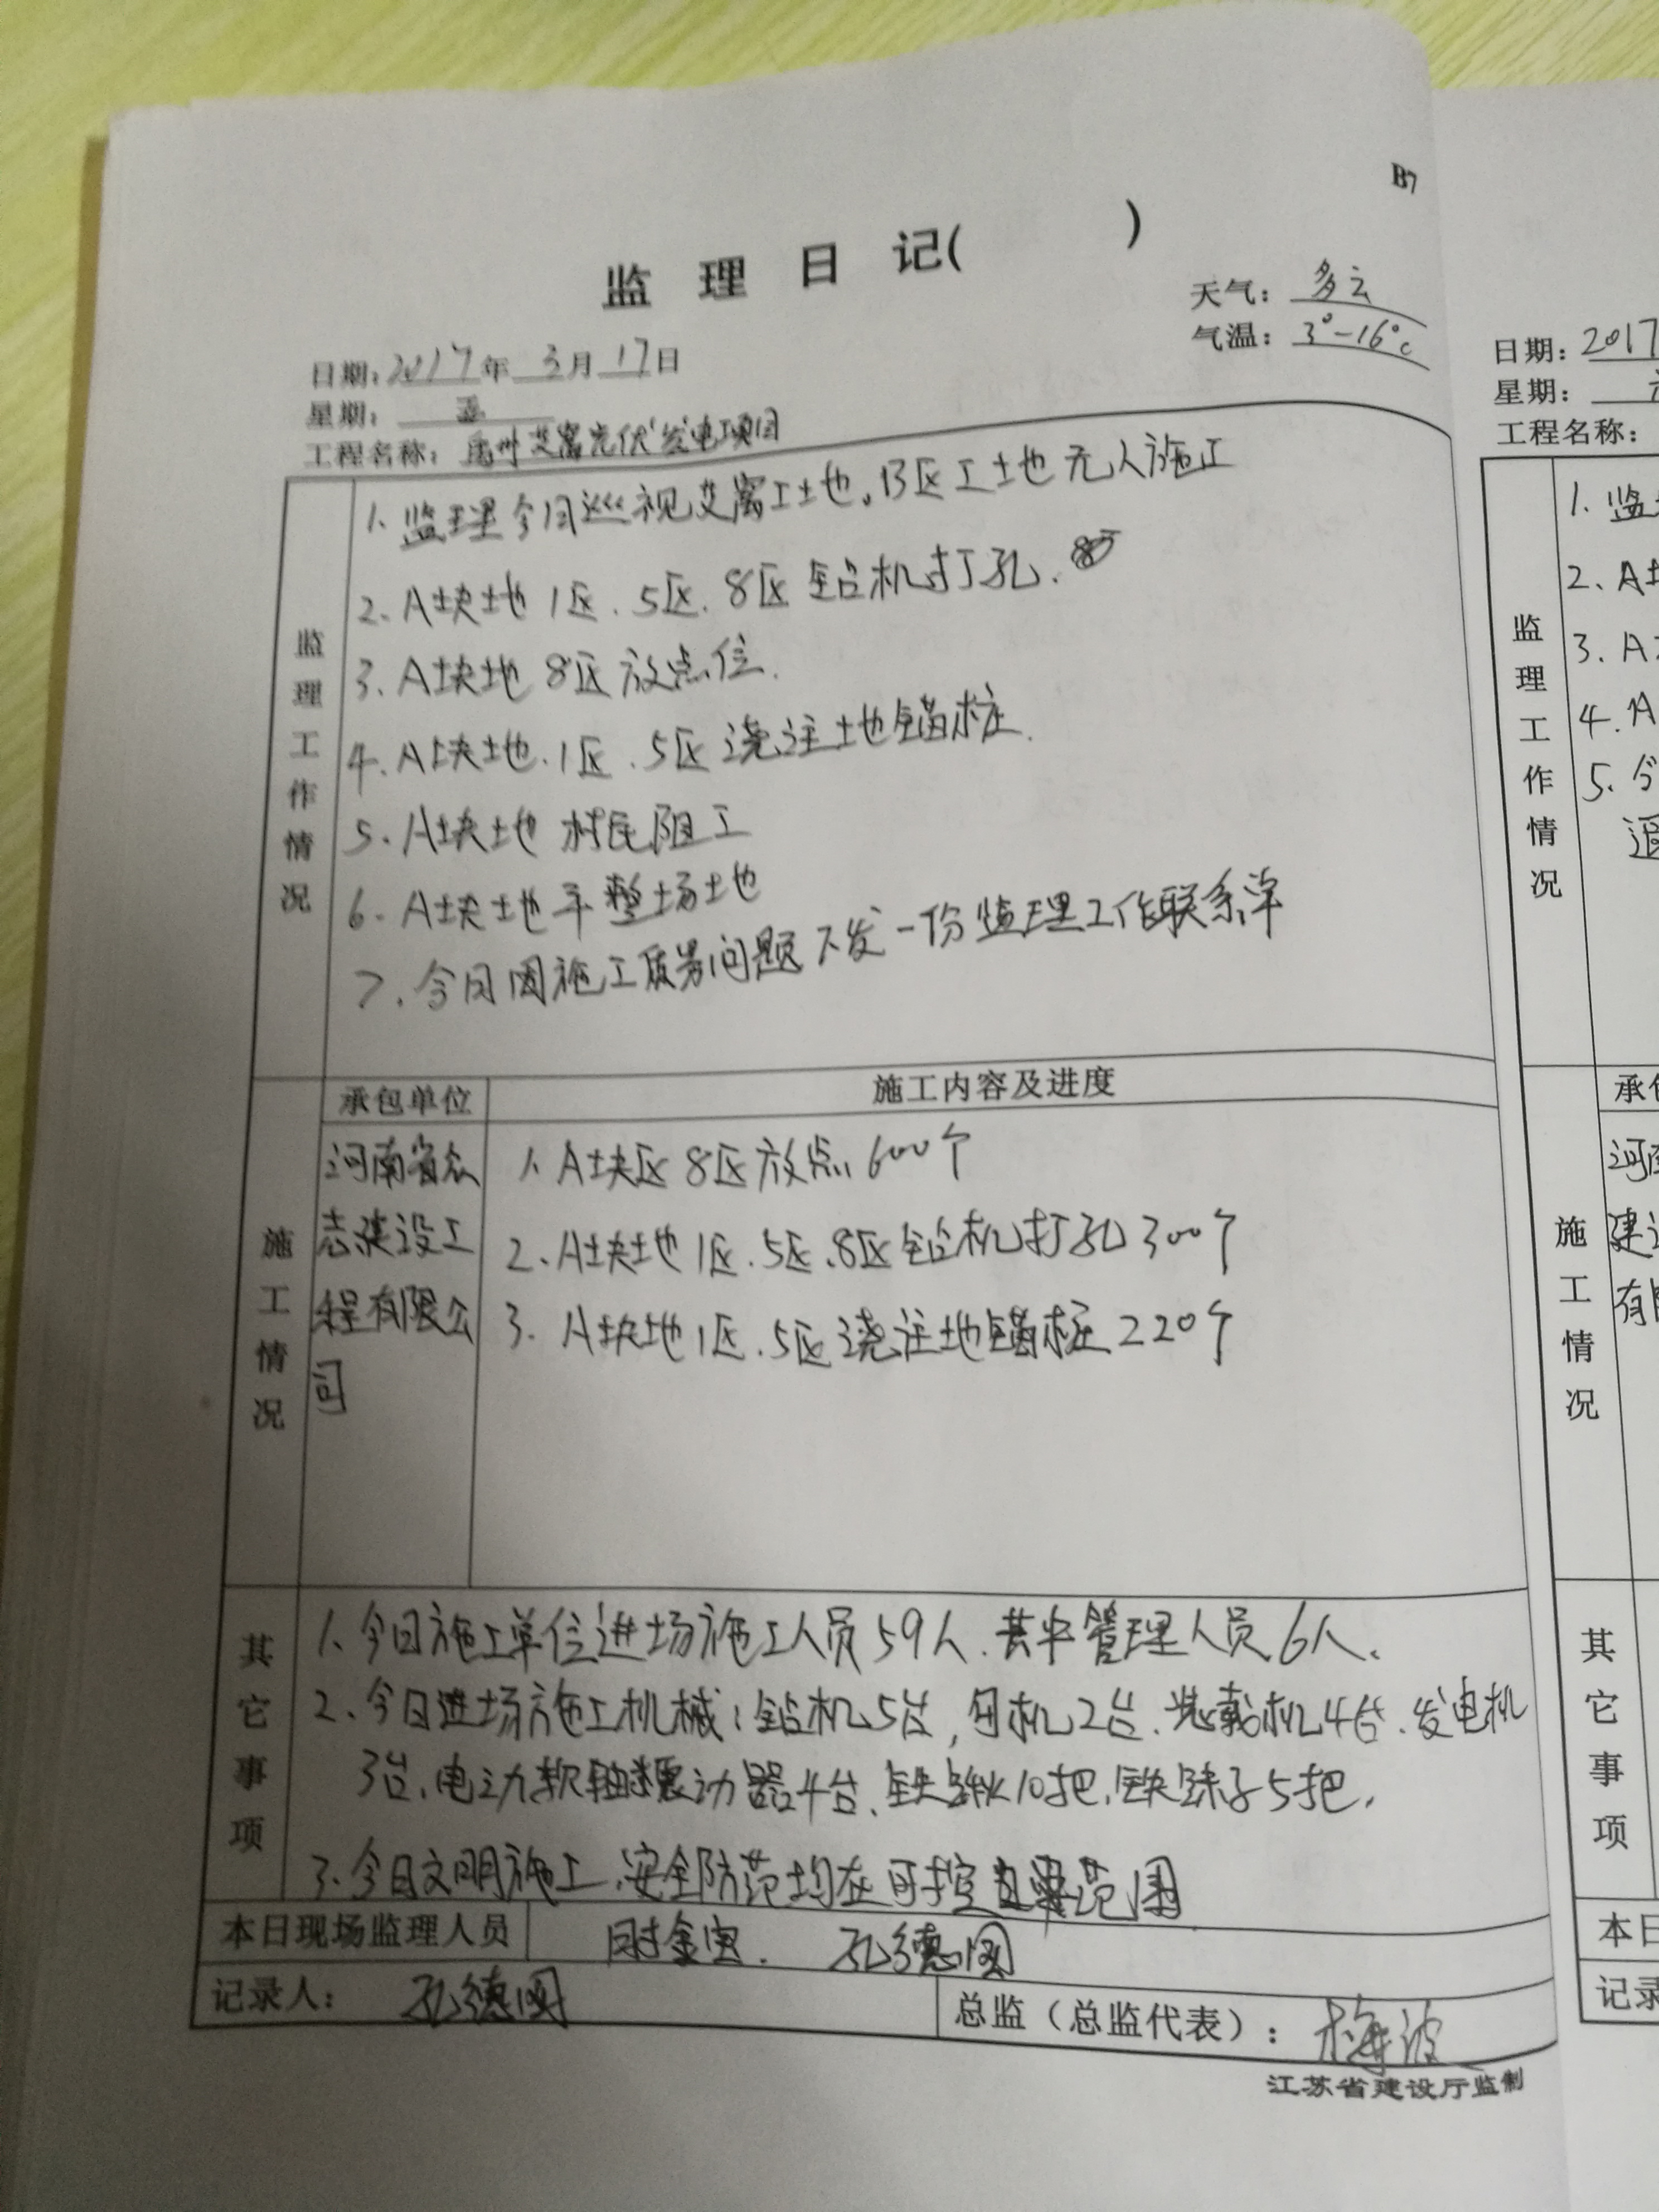 B7
监 理 日 记( )
天气: 多云
气温: 3°-16°c
日期: 2017年 3月 17日
星期: 五
工程名称: 禹州艾窝光伏发电项目
监理工作情况
1、监理今日巡视艾窝工地。B区工地无人施工
2、A块地1区、5区、8区钻机打孔、
3、A块地8区放点位、
4、A块地、1区、5区浇注地锚桩、
5、A块地 村民阻工
6、A块地平整场地
7、今日因施工质易问题下发一份监理工作联系单
承包单位 施工内容及进度
施工情况
河南省众
志建设工
程有限公
司
1、A块区8区放点600个
2、A块地1区、5区、8区钻机打孔300个
3、A块地1区、5区浇注地锚桩220个
其它事项
1、今日施工单位进场施工人员59人、其中管理人员6人、
2、今日进场施工机械:钻机5台,勾机2台、装载机4台、发电机
3台、电动软轴振动器4台、铁锹10把、铁銇子5把、
3、今日文明施工、安全防范均在可控范围
本日现场监理人员 金宝、 孔德国
记录人: 孔德国
总监（总监代表）: 梅波
江苏省建设厅监制
日期: 2017
星期:
工程名称:
监理工作情况
1、监
2、A
3、A
4、A
5、今
承包
施工情况
河南
建设
有限
其它事项
本日
记录